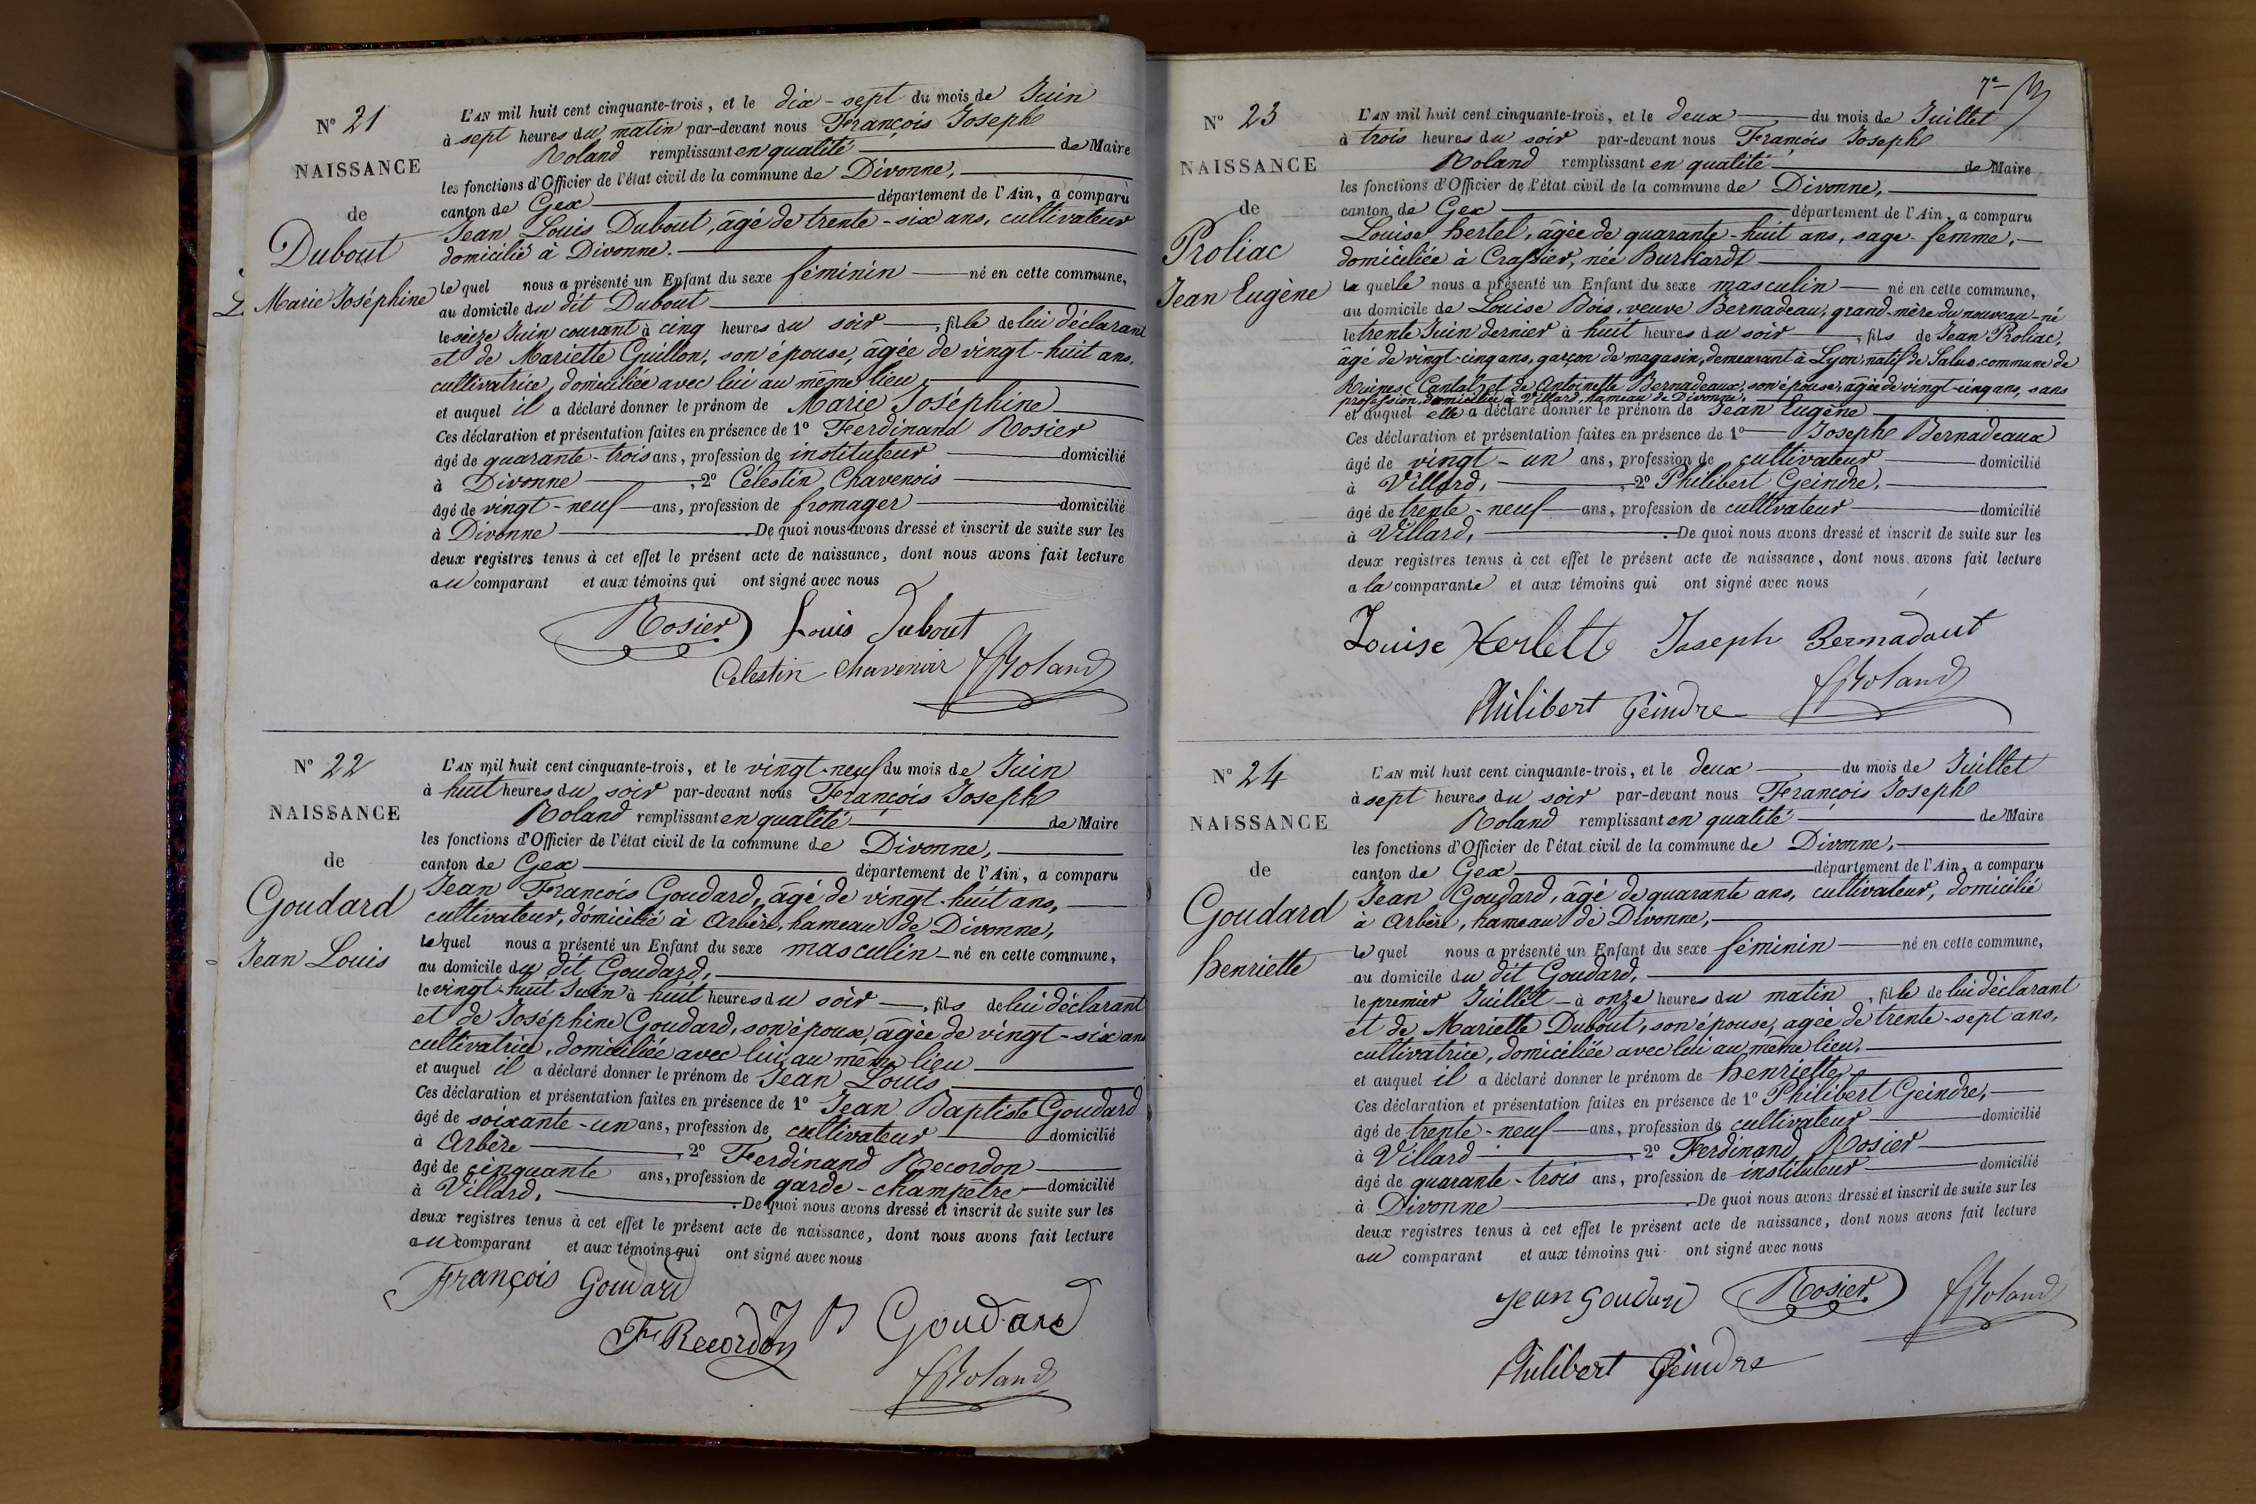 N° 21
NAISSANCE
de
Dubout
Marie Joséphine
L'AN mil huit cent cinquante-trois, et le dix-sept du mois de Juin
à sept heures du matin par-devant nous François Joseph
Roland remplissant en qualité de Maire
les fonctions d'Officier de l'état civil de la commune de Divonne,
canton de Gex département de l'Ain, a comparu
Jean Louis Dubout, âgé de trente-six ans, cultivateur
domicilié à Divonne.
lequel nous a présenté un Enfant du sexe féminin né en cette commune,
au domicile du dit Dubout
le seize Juin courant à cinq heures du soir, fille de lui déclarant
et de Mariette Guillon, son épouse, âgée de vingt-huit ans,
cultivatrice, domiciliée avec lui au même lieu
et auquel il a déclaré donner le prénom de Marie Joséphine
Ces déclaration et présentation faites en présence de 1° Ferdinand Rosier
âgé de quarante-trois ans, profession de instituteur domicilié
à Divonne, 2° Célestin Chavenois
âgé de vingt-neuf ans, profession de fromager domicilié
à Divonne. De quoi nous avons dressé et inscrit de suite sur les
deux registres tenus à cet effet le présent acte de naissance, dont nous avons fait lecture
au comparant et aux témoins qui ont signé avec nous
Rosier Louis Dubout
Celestin Chavenoir FRoland
N° 22
NAISSANCE
de
Goudard
Jean Louis
L'AN mil huit cent cinquante-trois, et le vingt-neuf du mois de Juin
à huit heures du soir par-devant nous François Joseph
Roland remplissant en qualité de Maire
les fonctions d'Officier de l'état civil de la commune de Divonne,
canton de Gex département de l'Ain, a comparu
Jean François Goudard, âgé de vingt-huit ans,
cultivateur, domicilié à Arbère, hameau de Divonne,
lequel nous a présenté un Enfant du sexe masculin né en cette commune,
au domicile du dit Goudard,
le vingt-huit Juin à huit heures du soir, fils de lui déclarant
et de Joséphine Goudard, son épouse, âgée de vingt-six ans
cultivatrice, domiciliée avec lui au même lieu
et auquel il a déclaré donner le prénom de Jean Louis
Ces déclaration et présentation faites en présence de 1° Jean Baptiste Goudard
âgé de soixante-un ans, profession de cultivateur domicilié
à Arbère, 2° Ferdinand Recordon
âgé de cinquante ans, profession de garde-champêtre domicilié
à Villard,. De quoi nous avons dressé et inscrit de suite sur les
deux registres tenus à cet effet le présent acte de naissance, dont nous avons fait lecture
au comparant et aux témoins qui ont signé avec nous
François Goudard
Fd Recordon J B Goudard
FRoland
7e
N° 23
NAISSANCE
de
Proliac
Jean Eugène
L'AN mil huit cent cinquante-trois, et le deux du mois de Juillet
à trois heures du soir par-devant nous François Joseph
Roland remplissant en qualité de Maire
les fonctions d'Officier de l'état civil de la commune de Divonne,
canton de Gex département de l'Ain, a comparu
Louise hertel, âgée de quarante-huit ans, sage-femme,
domiciliée à Crassier, née Burkardt
laquelle nous a présenté un Enfant du sexe masculin né en cette commune,
au domicile de Louise Bois, veuve Bernadeau, grand-mère du nouveau-né
le trente Juin dernier à huit heures du soir, fils de Jean Proliac,
âgé de vingt-cinq ans, garçon de magasin, demeurant à Lyon, natif de Salus, commune de
Ruines (Cantal) et de Antoinette Bernadeaux, son épouse, âgée de vingt-cinq ans, sans
profession, domiciliée à Villard, hameau de Divonne,
et auquel elle a déclaré donner le prénom de Jean Eugène
Ces déclaration et présentation faites en présence de 1° Joseph Bernadeaux
âgé de vingt-un ans, profession de cultivateur domicilié
à Villard, 2° Philibert Geindre,
âgé de trente-neuf ans, profession de cultivateur domicilié
à Villard,. De quoi nous avons dressé et inscrit de suite sur les
deux registres tenus à cet effet le présent acte de naissance, dont nous avons fait lecture
a la comparante et aux témoins qui ont signé avec nous
Louise Herlette Joseph Bernadaut
Philibert Geindre FRoland
N° 24
NAISSANCE
de
Goudard
henriette
L'AN mil huit cent cinquante-trois, et le deux du mois de Juillet
à sept heures du soir par-devant nous François Joseph
Roland remplissant en qualité de Maire
les fonctions d'Officier de l'état civil de la commune de Divonne,
canton de Gex département de l'Ain, a comparu
Jean Goudard, âgé de quarante ans, cultivateur, domicilié
à Arbère, hameau de Divonne,
lequel nous a présenté un Enfant du sexe féminin né en cette commune,
au domicile du dit Goudard,
le premier Juillet à onze heures du matin, fille de lui déclarant
et de Mariette Dubout, son épouse, agée de trente-sept ans,
cultivatrice, domiciliée avec lui au même lieu,
et auquel il a déclaré donner le prénom de henriette
Ces déclaration et présentation faites en présence de 1° Philibert Geindre,
âgé de trente-neuf ans, profession de cultivateur domicilié
à Villard, 2° Ferdinand Rosier
âgé de quarante-trois ans, profession de instituteur domicilié
à Divonne. De quoi nous avons dressé et inscrit de suite sur les
deux registres tenus à cet effet le présent acte de naissance, dont nous avons fait lecture
au comparant et aux témoins qui ont signé avec nous
Jean Goudard Rosier FRoland
Philibert Geindre